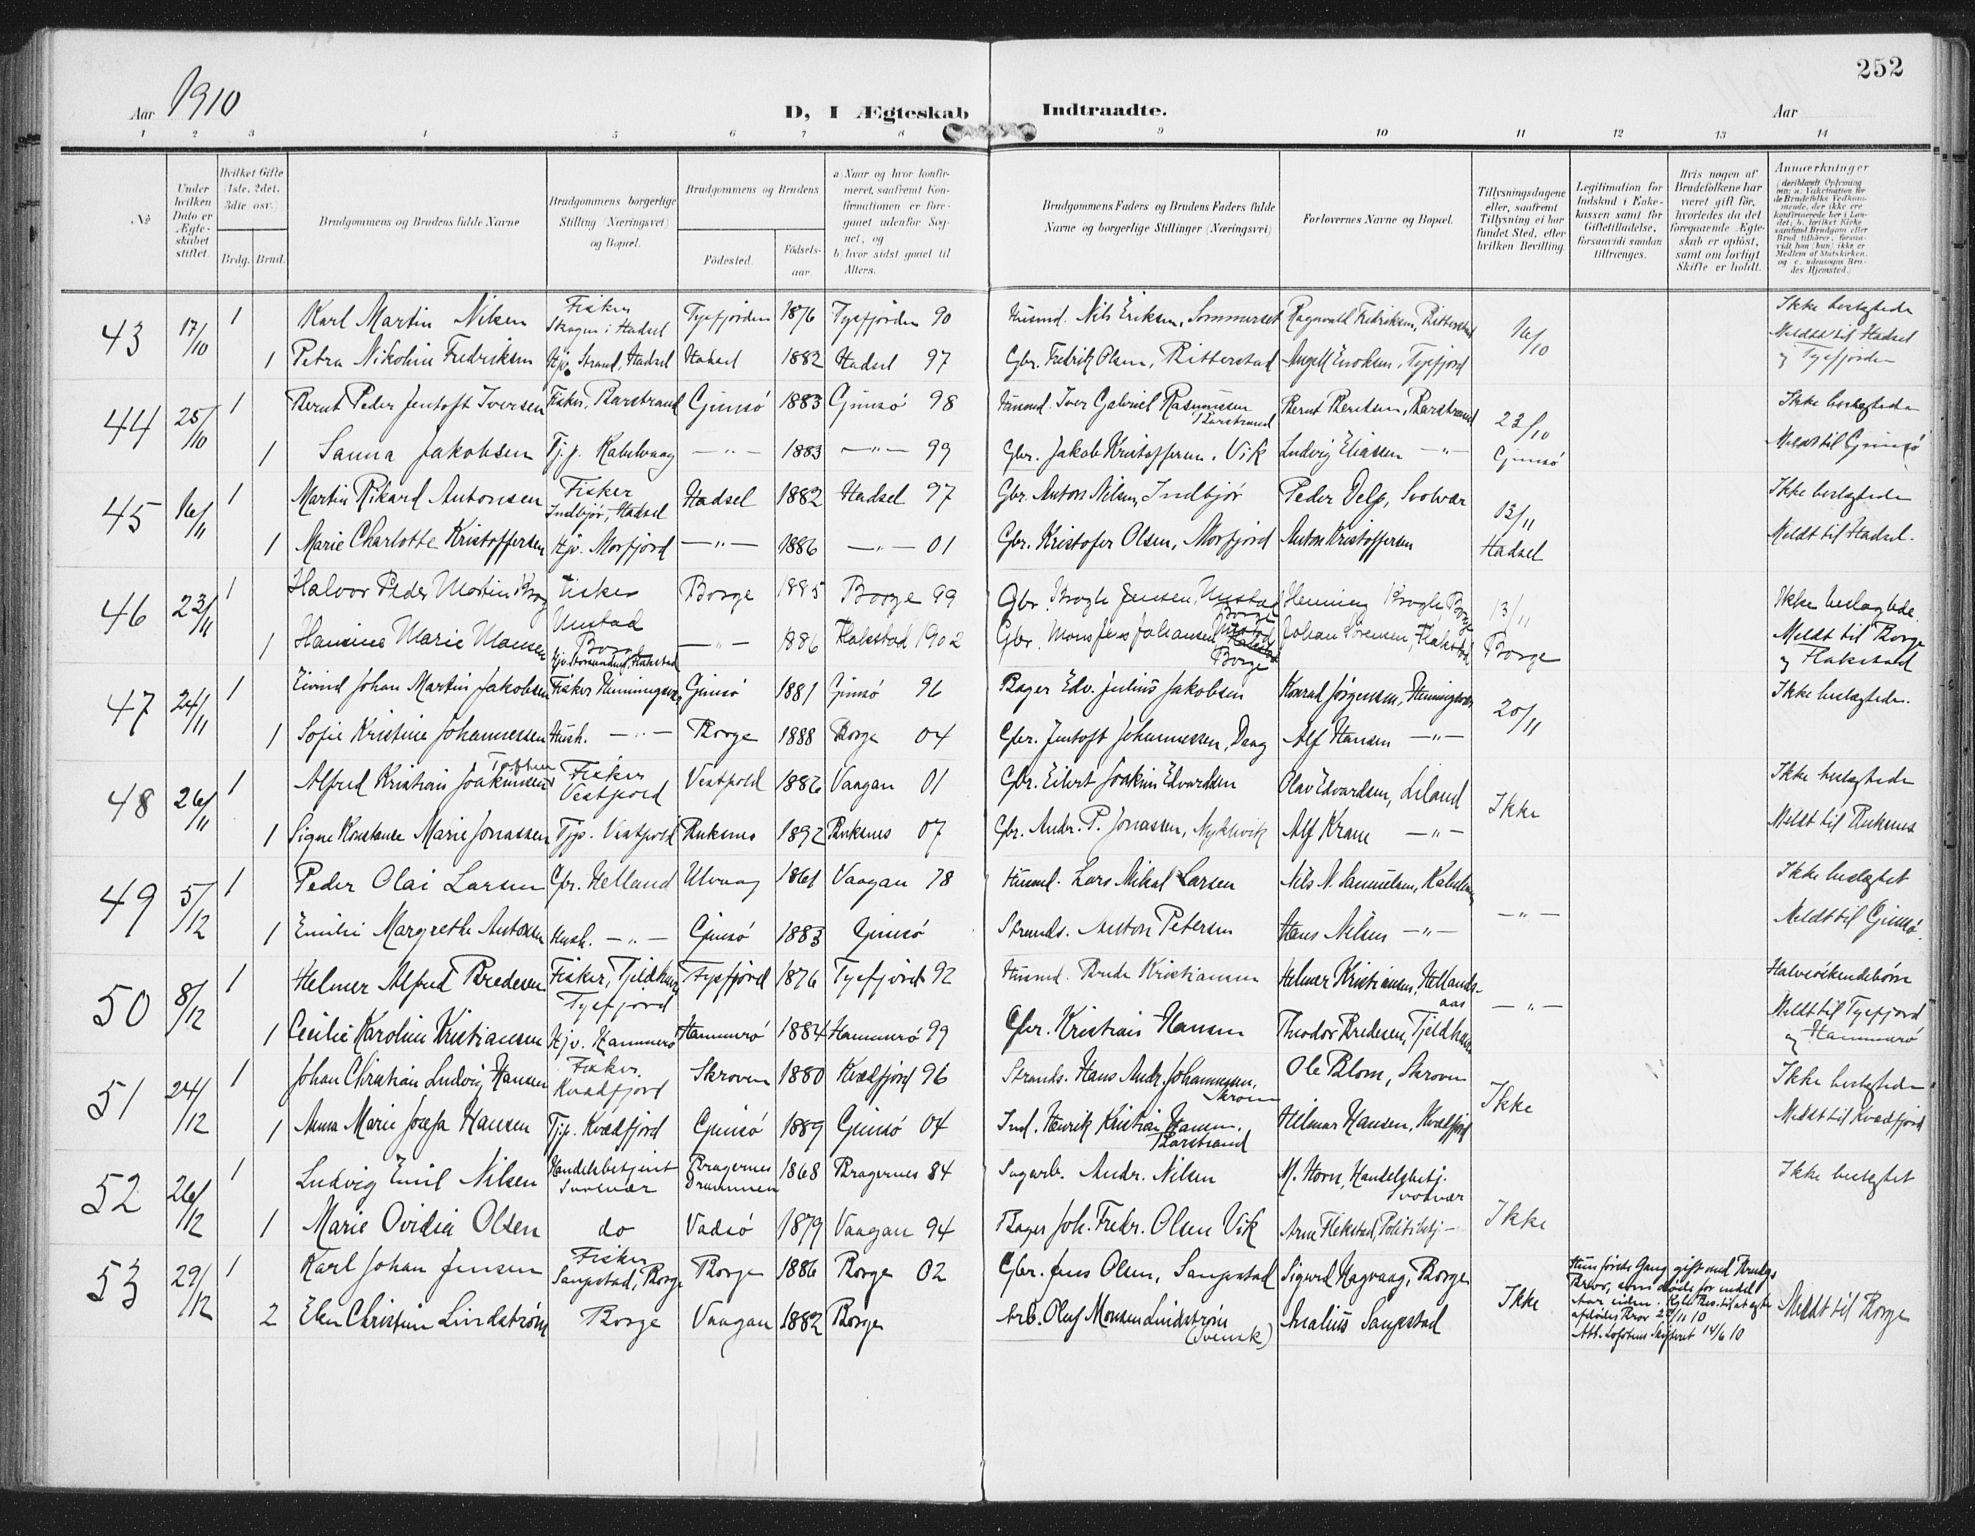 252
Aar 1910
D, I Ægteskab Indtraadte.
Aar
1 2 3 4 5 6 7 8 9 10 11 12 13 14
No
Under hvilken Dato er Ægteskabet stiftet.
Hvilket Gifte (1ste, 2det, 3die osv.)
Brdg. Brud.
Brudgommens og Brudens fulde Navne
Brudgommens borgerlige Stilling (Næringsvei) og Bopæl.
Brudgommens og Brudens
Fødested. Fødselsaar.
a) Naar og hvor konfirmeret, saafremt Konfirmationen er foregaaet udenfor Sognet, og
b) hvor sidst gaaet til Alters.
Brudgommens Faders og Brudens Faders fulde Navne og borgerlige Stillinger (Næringsvei)
Forlovernes Navne og Bopæl.
Tillysningsdagene eller, saafremt Tillysning ei har fundet Sted, efter hvilken Bevilling.
Legitimation for Indskud i Enkekassen samt for Giftetilladelse, forsaavidt saadan tiltrænges.
Hvis nogen af Brudefolkene har været gift før, hvorledes da det foregaaende Ægteskab er opløst, samt om lovligt Skifte er holdt.
Anmærkninger
43 17/10 1 Karl Martin Nilsen Fisker Skagen i Hadsel Tysfjorden 1876 Tysfjorden 90 Husmd. Nils Eriksen, Sommerset Ragnvald Fredriksen, Ritterstad 16/10 Ikke beslægtede
1 Petra Nikoline Fredriksen Hjv. Strand, Hadsel Hadsel 1882 Hadsel 97 Gbr. Fredrik Olsen, Ritterstad Angell Enoksen, Tysfjord Meldt til Hadsel og Tysfjorden
44 25/10 1 Bernt Peder Jentoft Iversen Fisker, Barstrand Gimsö 1883 Gimsö 98 Husmd. Iver Gabriel Rasmussen Barstrand Bernt Berntsen, Barstrand 23/10 Gimsö Ikke beslægtede
1 Sanna Jakobsen Tj. p. Kabelvaag —„— 1883 —„— 99 Gbr. Jakob Kristoffersen, Vik Ludvig Eliassen —„— Meldt til Gimsö
45 16/11 1 Martin Rikard Antonsen Fisker Indbjör, Hadsel Hadsel 1882 Hadsel 97 Gbr. Anton Nilsen, Indbjör Peder Delp, Svolvær 13/11 Hadsel Ikke beslægtede
1 Marie Charlotte Kristoffersen Hjv. Morfjord —„— 1886 —„— 01 Gbr. Kristofer Olsen, Morfjord Anton Kristoffersen Meldt til Hadsel.
46 23/11 1 Halvor Peder Martin Krog Fisker Unstad Borge Borge 1885 Borge 99 Gbr. Krogh Jensen, Unstad Borge Henning Krogh Borge 13/11 Borge Ikke beslægtede
1 Hansine Marie Monsen —„— 1886 Flakstad 1902 Gbr. Mons Jens Johansen Borge Johan Sörensen, Flakstad Meldt til Borge og Flakstad
47 24/11 1 Eivind Johan Martin Jakobsen Fisker Henningsvær Gimsö 1881 Gimsö 96 Bager Edv. Julius Jakobsen Konrad Jørgensen, Henningsvær 20/11 Ikke beslægtede.
1 Sofie Kristine Johannessen Hush. —„— Borge 1888 Borge 04 Gbr. Jentoft Johannessen, Aalf Hansen —„—
48 26/11 1 Alfred Kristian Joakimsen Fisker Vestpold Vestpold 1882 Vaagan 01 Gbr. Eilert Joakim Edvardsen Olav Edvardsen, Liland Ikke Ikke beslægtede
1 Signe Konstance Marie Jonassen Tjp. Vestpold Buksnes 1892 Buksnes 07 Gbr. Andr. P. Jonassen, Alf Krane —„— Meldt til Buksnes
49 5/12 1 Peder Olai Larsen Gbr. Helland Ulvaag 1861 Vaagan 78 Husmd. Lars Mikal Larsen Nils N. Samuelsen, Kabelvaag —„— Ikke beslægtet
1 Emilie Margrethe Antonsen Hush. —„— Gimsö 1883 Gimsö Strands. Anton Petersen Hans Nilsen —„— Meldt til Gimsö.
50 8/12 1 Helmer Alfred Bredesen Fisker, Tjeldhun Tysfjord Tysfjord 1876 Tysfjord 92 Husmd. Brede Kristiansen Helmer Kristiansen, Hellandsaas —„— Halvsöskendebörn
1 Cecilie Karoline Kristiansen Hjv. Hammerö Hammerö 1884 Hammerö 99 Gbr. Kristian Hansen Theodor Bredesen, Tjeldhun Meldt til Tysfjord og Hammerö
51 24/12 1 Johan Christian Ludvig Hansen Fisker. Kvædfjord Skroven 1880 Kvædfjord 96 Strands. Hans Andr. Johannesen, Skroven Ole Blom, Skroven Ikke Ikke beslægtede
1 Anna Marie Josefa Hansen Tjp. Kvædfjord Gimsö 1889 Gimsö 04 Ind. Henrik Kristian Hansen, Barstrand Hilmar Hansen, Kvædfjord Meldt til Kvædfjord
52 26/12 1 Ludvig Emil Nilsen Handelsbetjent Svolvær Bragernes Drammen 1868 Bragernes 84 Sagarb. Andr. Nilsen M. Horn, Handelsbetj. Svolvær Ikke Ikke beslægtet
1 Marie Ovidia Olsen do Vadsö 1879 Vaagan 94 Bager Joh. Fredr. Olsen Vik Arne Flekstad, Politibtj —
53 29/12 1 Karl Johan Jensen Fisker Sanpstad, Borge Borge 1886 Borge 02 Gbr. Jens Olsen, Sanpstad Sigurd Hagvaag, Borge Ikke Hun förste Gang gift med Brudgs Bror, som döde for indel Aar siden. Kgl. Res. til at ægte afdödes Bror 28/11 10 Att. Lofotens Skifteret 14/6 10 Meldt til Borge
2 Elen Christine Lindström Borge Vaagan 1882 Borge Arb. Oluf Monsen Lindström (Svensk) Analius Sanpstad